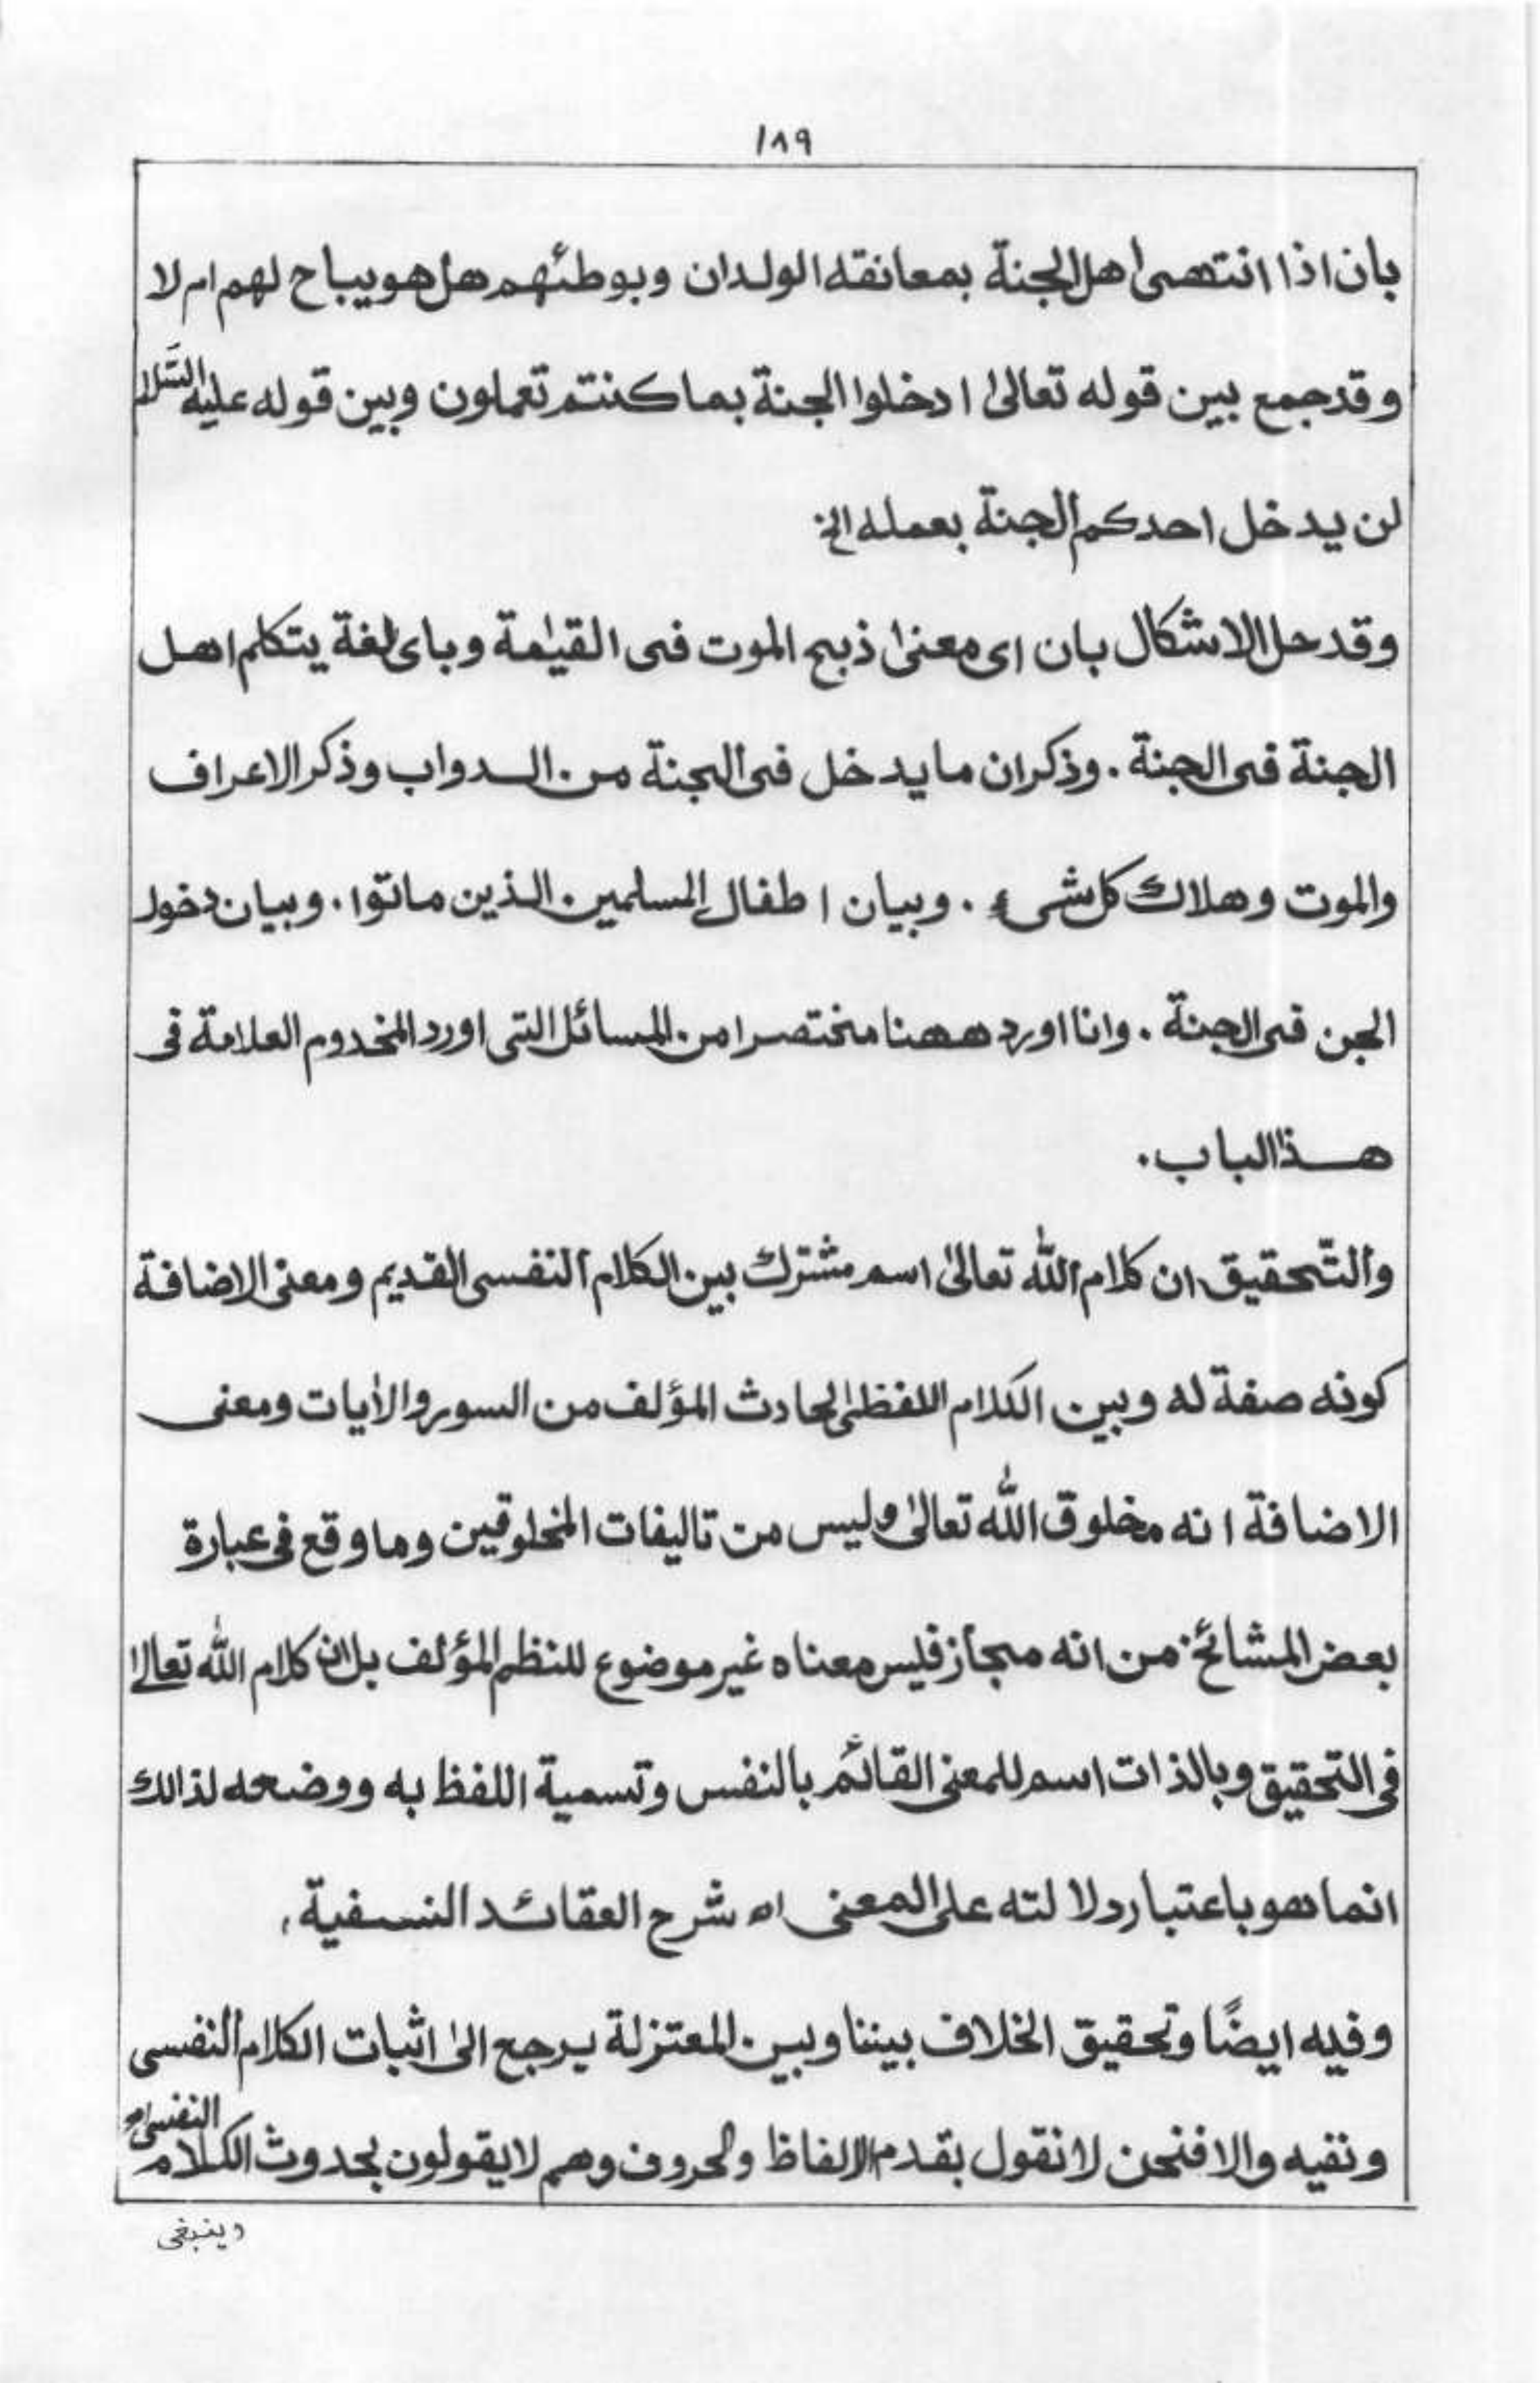 ١٨٩
بان اذا انتهىٰ اهل الجنة بمعانقه الولدان وبوطئهم هل هو يباح لهم ام لا
وقد جمع بين قوله تعالىٰ ادخلوا الجنة بما كنتم تعملون وبين قوله عليه السّلام
لن يدخل احدكم الجنة بعمله الخ
وقد حل الاشكال بان اى معنىٰ ذبح الموت فى القيٰمة وباى لغة يتكلم اهل
الجنة فى الجنة . وذكر ان ما يدخل فى الجنة من الدواب وذكر الاعراف
والموت وهلاك كل شىء . وبيان اطفال المسلمين الذين ماتوا . وبيان دخول
الجن فى الجنة . وانا اورد ههنا مختصرا من المسائل التى اورد المخدوم العلامة فى
هذا الباب .
والتّحقيق ان كلام الله تعالىٰ اسم مشترك بين الكلام النفسى القديم ومعنى الاضافة
كونه صفة له وبين الكلام اللفظى الحادث المؤلف من السور والاٰيات ومعنى
الاضافة انه مخلوق الله تعالىٰ وليس من تاليفات المخلوقين وما وقع فى عبارة
بعض المشائخ من انه مجاز فليس معناه غير موضوع للنظم المؤلف بل ان كلام الله تعالىٰ
فى التحقيق وبالذات اسم للمعنى القائم بالنفس وتسمية اللفظ به ووضعه لذالك
انما هو باعتبار دلالته على المعنى اه شرح العقائد النسفية ،
وفيه ايضًا وتحقيق الخلاف بيننا وبين المعتزلة يرجع الىٰ اثبات الكلام النفسى
ونفيه والا فنحن لا نقول بقدم الالفاظ والحروف وهم لا يقولون بحدوث الكلام النفسى اه
وينبغى